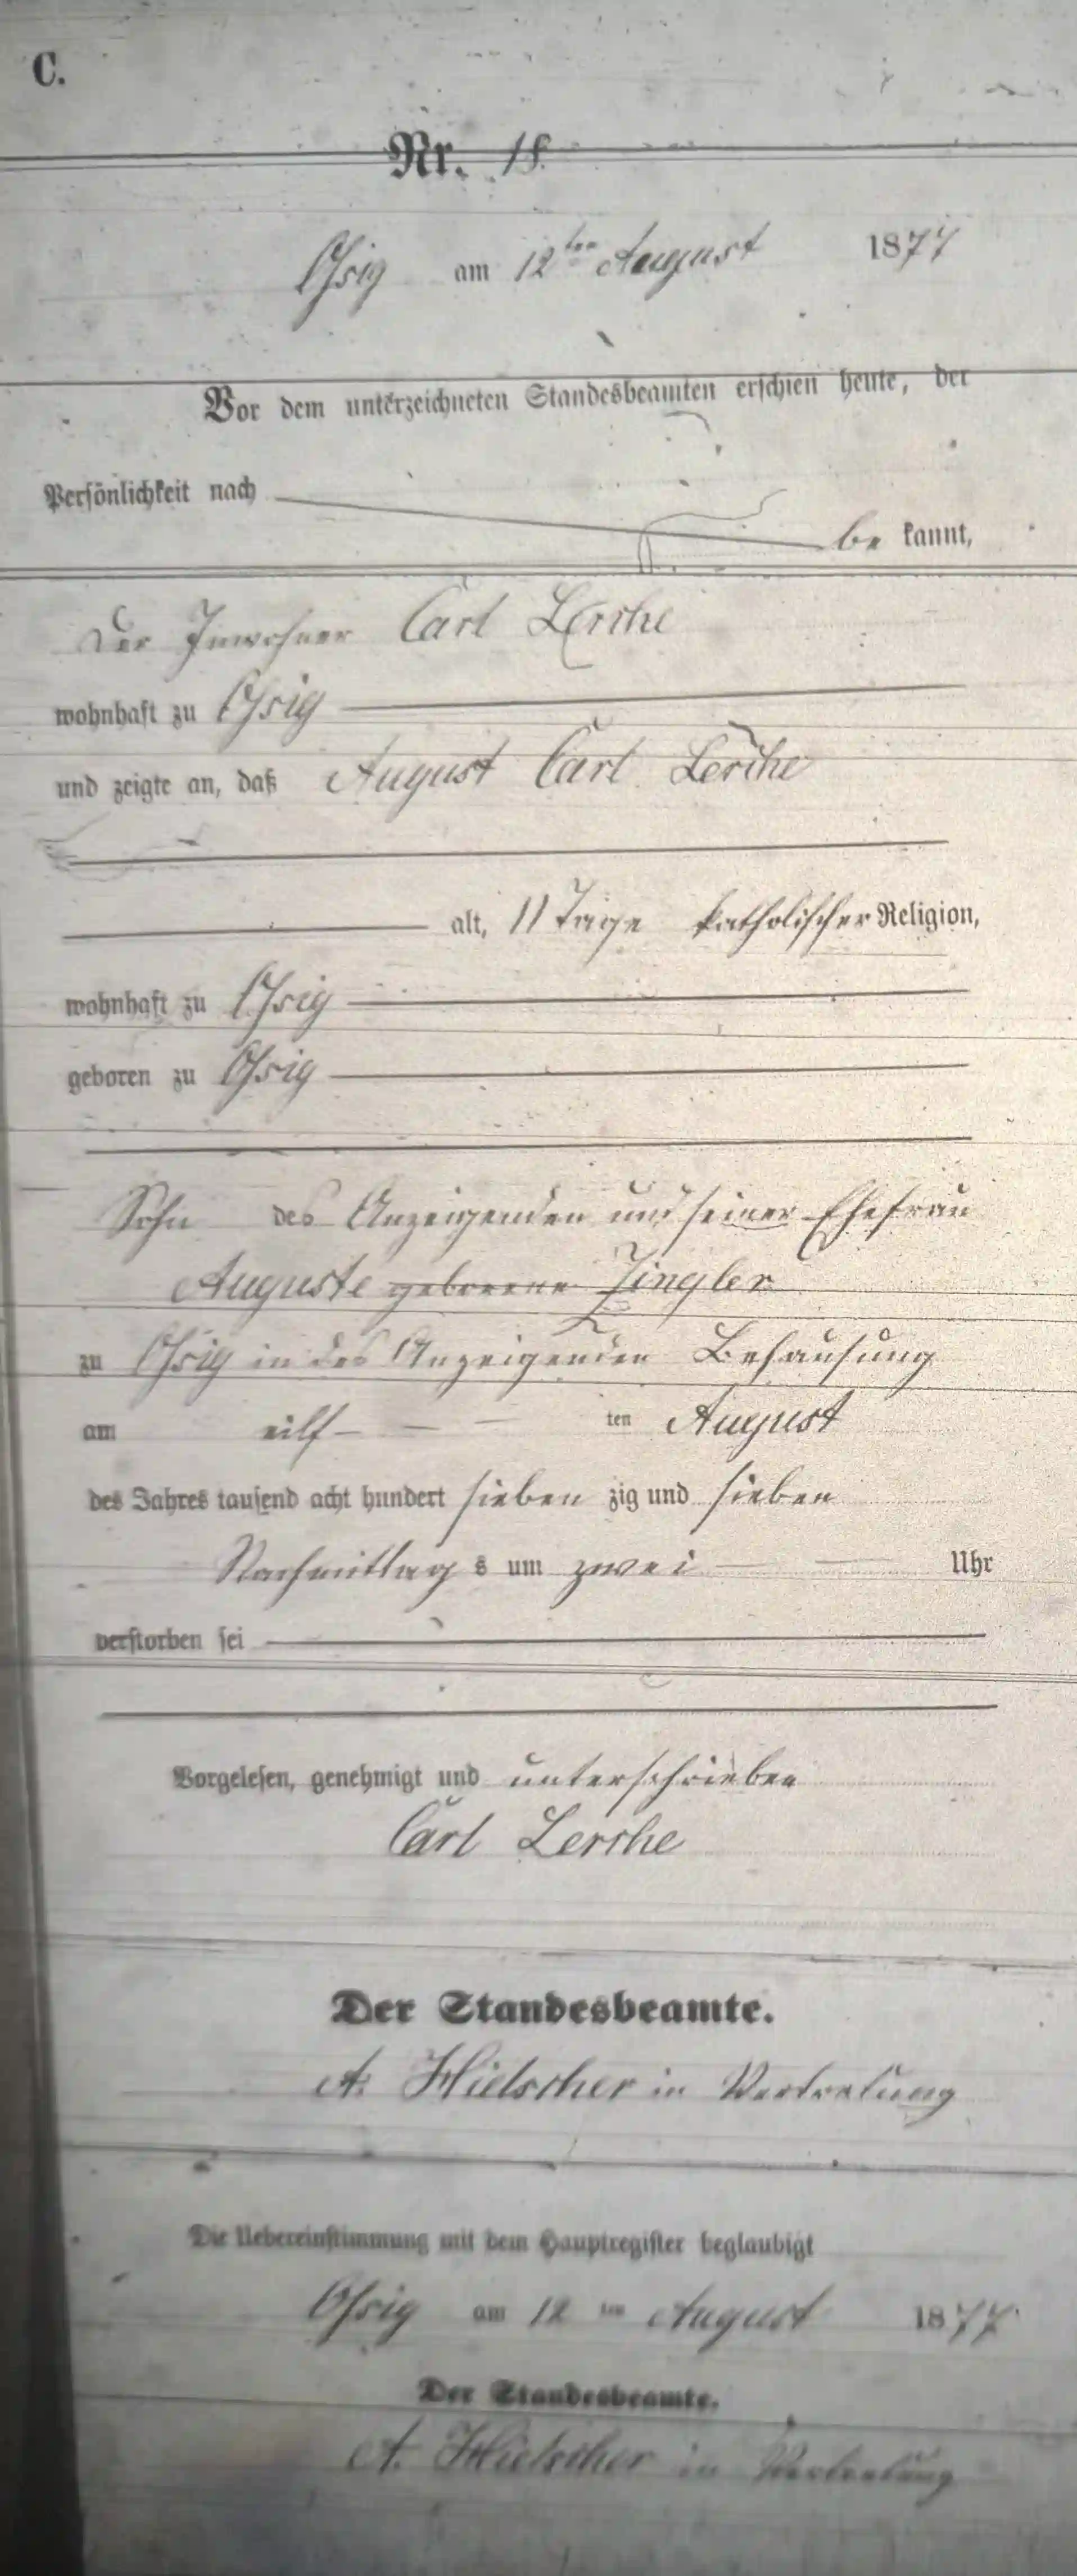 C.
Nr. 18.
Ossig am 12ten August 1877
Vor dem unterzeichneten Standesbeamten erschien heute, der
Persönlichkeit nach
be kannt,
Der Inwohner Carl Lerche
wohnhaft zu Ossig
und zeigte an, daß August Carl Lerche
alt, 11 Tage katholischer Religion,
wohnhaft zu Ossig
geboren zu Ossig
Sohn des Anzeigenden und seiner Ehefrau
Auguste geborene
zu Ossig in des Anzeigenden Behausung
am eilf ten August
des Jahres tausend acht hundert sieben zig und sieben
Nachmittag s um zwei Uhr
verstorben sei
Vorgelesen, genehmigt und unterschrieben
Carl Lerche
Der Standesbeamte.
A. Hielscher in Vertretung
Die Uebereinstimmung mit dem Hauptregister beglaubigt
Ossig am 12 ten August 1877
Der Standesbeamte.
A. Hielscher in Vertretung